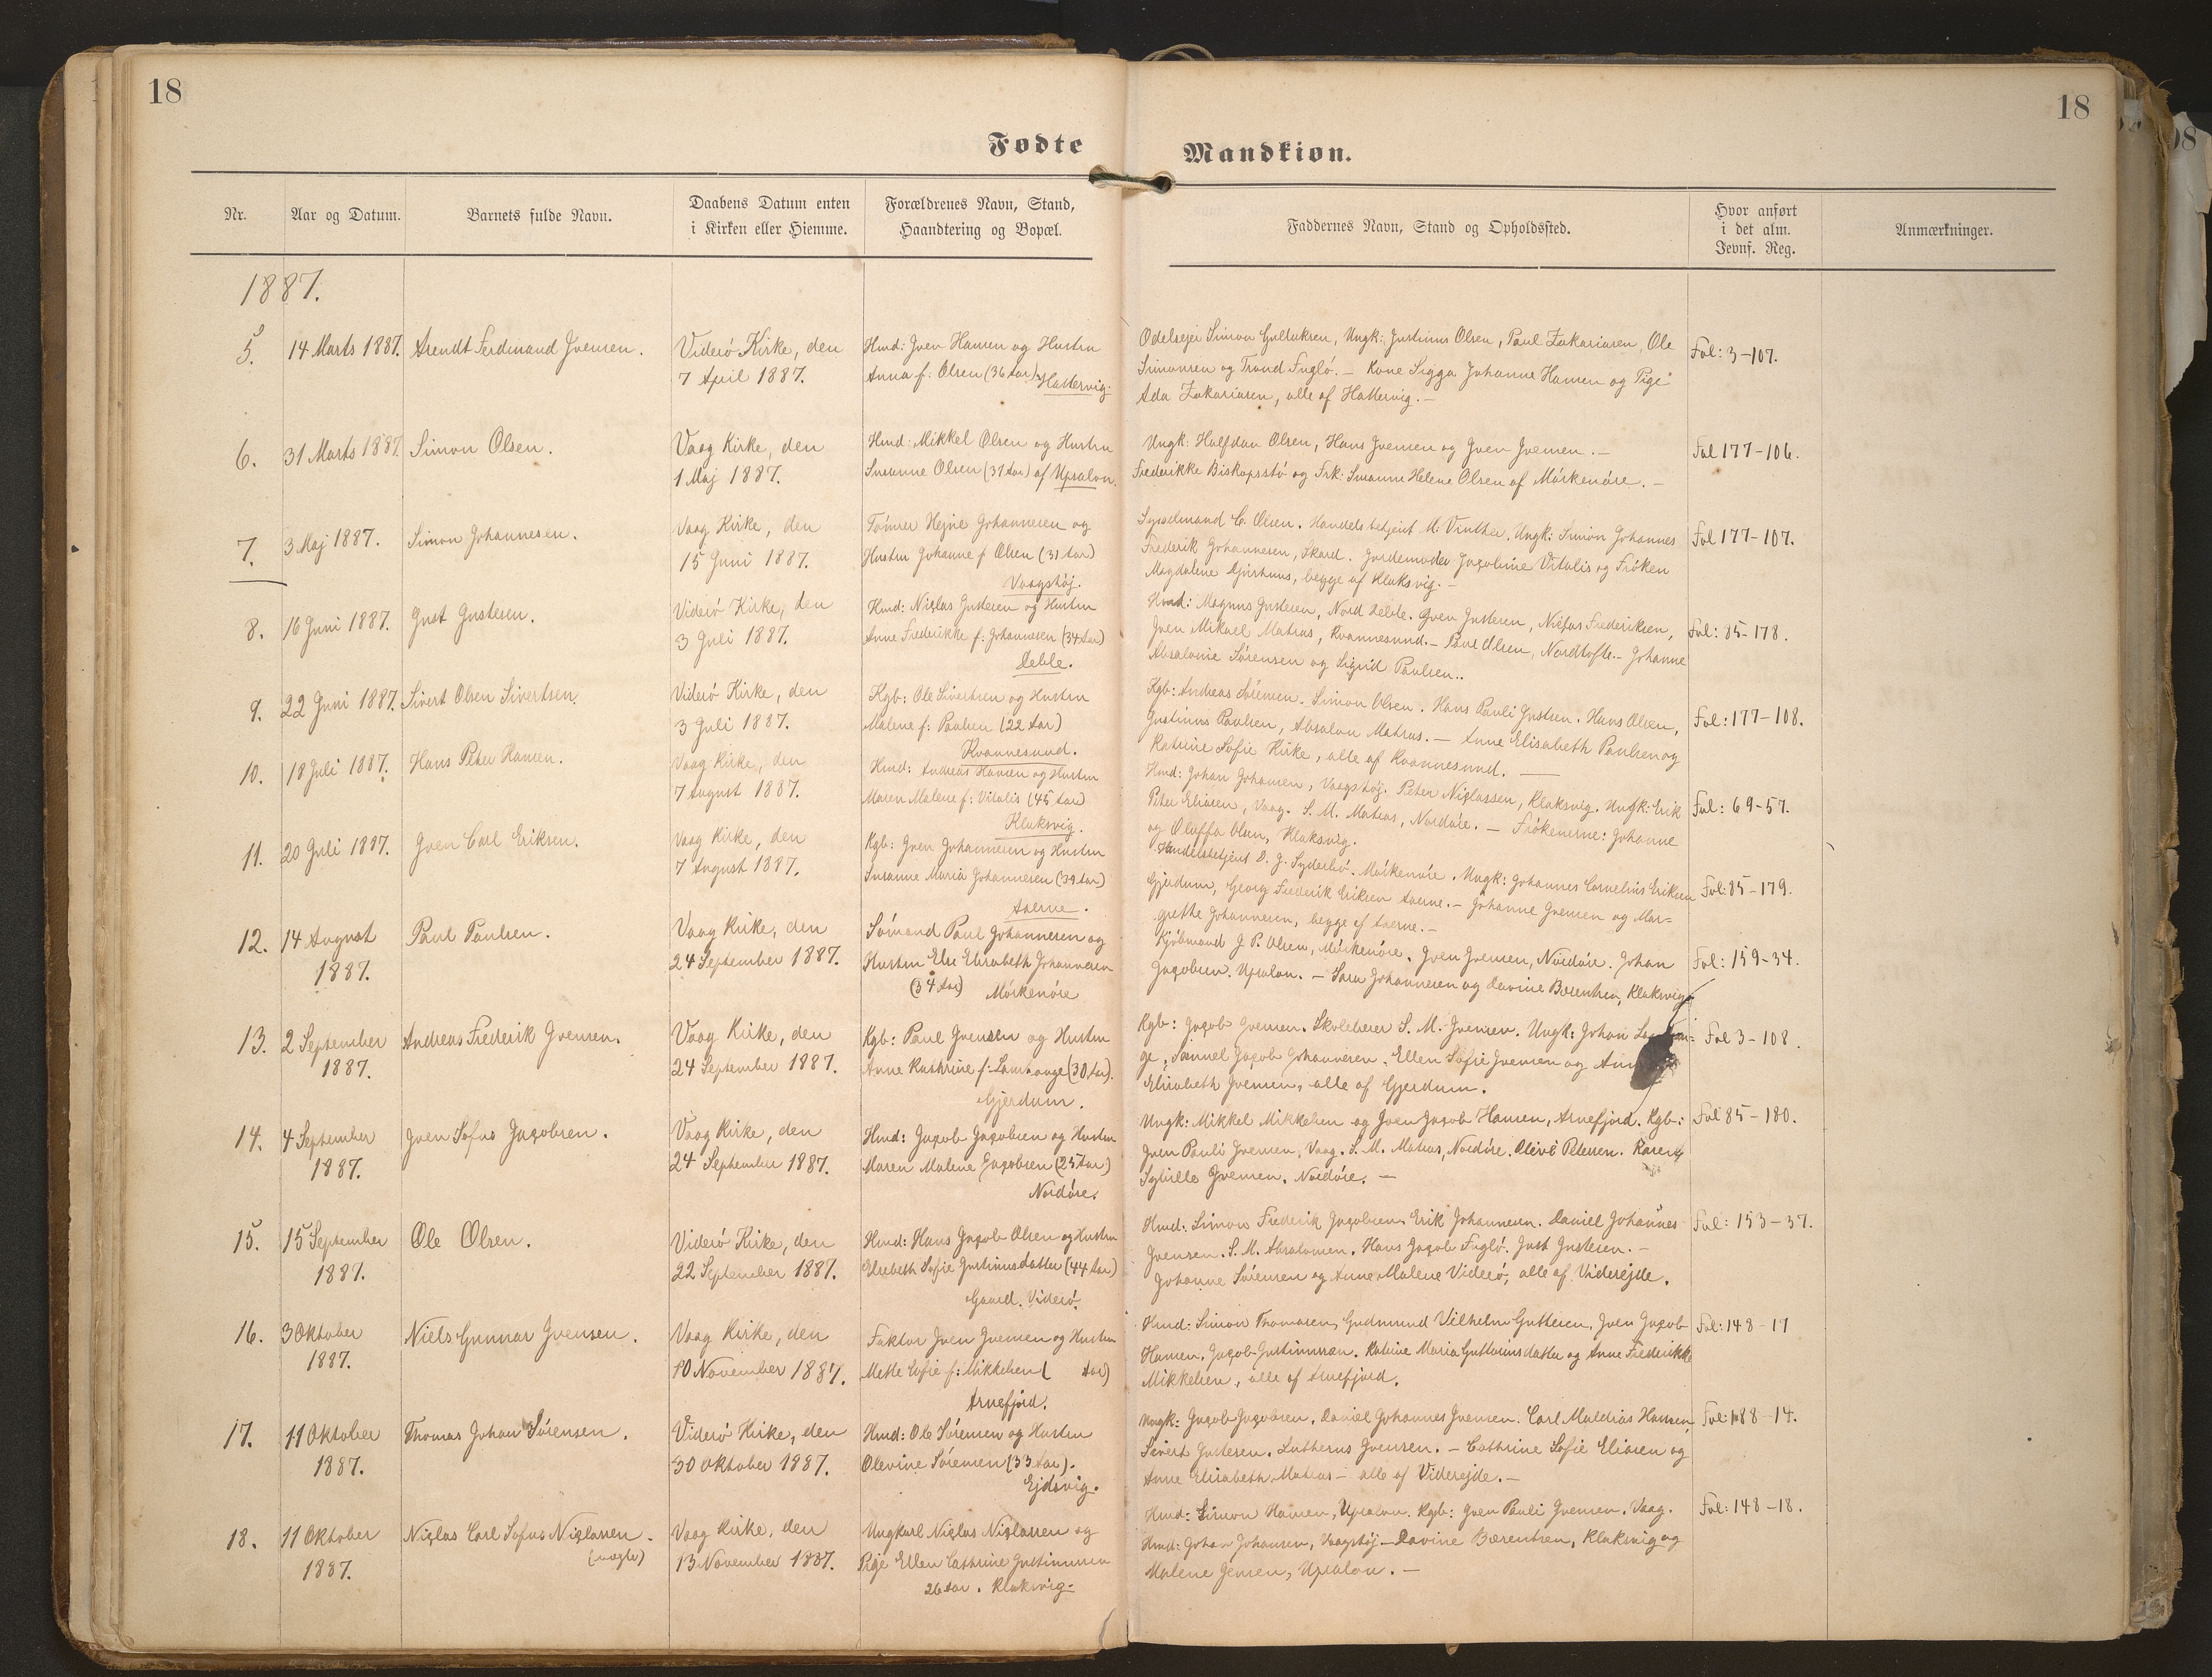 18
18
Fødte
Mandkiøn.
Nr.
Aar og Datum.
Barnets fulde Navn.
Daabens Datum enten
i Kirken eller Hiemme.
Forældrenes Navn, Stand,
Haandtering og Bopæl.
Faddernes Navn, Stand og Opholdssted.
Hvor anført
i det alm.
Jevnf. Reg.
Anmærkninger.
1887.
5.
14 Marts 1887.
Arendt Ferdinand Joensen.
Viderö Kirke, den
7 April 1887.
Hmd: Joen Hansen og Hustru
Anna f: Olsen (36 Aar) Hattervig.
Odelsejer Simon Guttuksen, Ungk: Justinus Olsen, Paul Zakariasen, Ole
Simonsen og Trond Fuglö. – Kone Sigga Johanne Hansen og Pige
Ada Zakariasen, alle af Hattervig. –
Fol: 3–107.
6.
31 Marts 1887
Simon Olsen.
Vaag Kirke, den
1 Maj 1887.
Hmd: Mikkel Olsen og Hustru
Susanne Olsen (37 Aar) af Upsalon.
Ungk: Halfdan Olsen, Hans Joensen og Joen Joensen. –
Frederikke Biskopsstö og Frk: Susanne Helene Olsen af Mörkenöre. –
Fol 177–106.
7.
3 Maj 1887.
Simon Johannesen.
Vaag Kirke, den
15 Juni 1887.
Tömrer Hejne Johannesen og
Hustru Johanne f Olsen (31 Aar)
Vaagshøj.
Sysselmand C. Olsen. Handelsbetjent M. Vinther. Ungk: Simon Johannes
Frederik Johannesen, Skard. Jordemoder Jacobine Vitalis og Fröken
Magdalene , begge af Klaksvig. –
Fol 177–107.
8.
16 Juni 1887.
Just Justesen.
Viderö Kirke, den
3 Juli 1887.
Hmd: Niclas Justesen og Hustru
Anne Frederikke f: Johannesen (34 Aar)
Deble.
Hmd: Magnus Justesen, Nord Deble. Joen Justesen, Niclas Frederiksen,
Joen Mikael Matras, Kvannesund. – Poul Olsen, Nordtofte. – Johanne
Absalonie Sörensen og Sigrid Paulsen..
Fol: 85–178.
9.
22 Juni 1887.
Sivert Olsen Sivertsen.
Viderö Kirke, den
3 Juli 1887.
Kgb: Ole Sivertsen og Hustru
Malene f: Paulsen (22 Aar)
Kvannesund.
Kgb: Andreas Sörensen. Simon Olsen. Hans Pauli Justsen. Hans Olsen,
Justinus Paulsen, Absalon Matras. – Anne Elisabeth Paulsen og
Katrine Sofie Kirke, alle af Kvannesund. –
Fol: 177–108.
10.
18 Juli 1887.
Hans Peter Hansen.
Vaag Kirke, den
7 August 1887.
Hmd: Andreas Hansen og Hustru
Maren Malene f: Vitalis (45 Aar)
Klaksvig.
Hmd: Johan Johansen, Vaagshöj. Peter Niclassen, Klaksvig. Ungk: Erik
Peter Eliasen, Vaag. S. M. Matras, Nordöre. – Frökenerne: Johanne
og Oluffa Olsen, Klaksvig.
Fol: 69–57.
11.
20 Juli 1887.
Joen Carl Eriksen.
Vaag Kirke, den
7 August 1887.
Kgb: Joen Johannesen og Hustru
Susanne Maria Johannesen (39 Aar)
Aaerne.
Handelsbetjent D. J. Syderbö. Mörkenöre. Ungk: Johannes Cornelius Eriksen
Gjerdum, Georg Frederik Eriksen Aaerne. – Johanne Joensen og Mar=
grethe Johannesen, begge af Aaerne. –
Fol: 85–179.
12.
14 August
1887.
Paul Paulsen.
Vaag Kirke, den
24 September 1887.
Sömand Paul Johannesen og
Hustru Else Elisabeth Johannesen
(34 Aar) Mörkenöre
Kjöbmand J. P. Olsen, Mörkenöre. Joen Joensen, Nordöre. Johan
Jacobsen. Upsalon. – Sara Johannesen og Davine Bærentsen, Klaksvig.
Fol: 159–34.
13.
2 September
1887.
Andreas Frederik Joensen.
Vaag Kirke, den
24 September 1887.
Kgb: Paul Joensen og Hustru
Anne Kathrine f: Lamhauge (30 Aar).
Gjerdum.
Kgb: Jacob Joensen. Skolelærer S. M. Joensen. Ungk: Johan
ge, Samuel Jacob Johannesen. Ellen Sofie Joensen og
Elisabeth Joensen, alle af Gjerdum.
Fol 3–108.
14.
4 September
1887.
Joen Sofus Jacobsen.
Vaag Kirke, den
24 September 1887.
Hmd: Jacob Jacobsen og Hustru
Maren Malene Jacobsen (25 Aar)
Nordöre.
Ungk: Mikkel Mikkelsen og Joen Jacob Hansen, Arnefjord. Kgb:
Joen Pauli Joensen, Vaag. S. M. Matras, Nordöre. Olive Petersen. Karen
Sybille Joensen. Nordöre. –
Fol 85–180.
15.
15 September
1887.
Ole Olsen.
Viderö Kirke, den
22 September 1887.
Hmd: Hans Jacob Olsen og Hustru
Elsebeth Sofie Justinusdatter (44 Aar)
Gaard. Viderö.
Hmd: Simon Frederik Jacobsen, Erik Johannesen. Daniel Johannes
Joensen. S. M. Absalonsen. Hans Jacob Fuglö. Just Justesen. –
Johanne Sörensen og Anne Malene Viderö, alle af Viderejde.
Fol: 153–37.
16.
3 Oktober
1887.
Niels Gunnar Joensen.
Vaag Kirke, den
10 November 1887.
Faktor Joen Joensen og Hustru
Mette Sofie f: Mikkelsen ( Aar)
Arnefjord.
Hmd: Simon Thomasen, Gudmund Vilhelm Guttesen, Joen Jacob
Hansen. Jacob Justinussen. Katrine Maria Guttormsdatter og Anne Frederikke
Mikkelsen, alle af Arnefjord.
Fol: 148–17
17.
11 Oktober
1887.
Thomas Johan Sörensen.
Viderö Kirke, den
30 Oktober 1887.
Hmd: Ole Sörensen og Hustru
Olevine Sörensen (33 Aar).
Ejdsvig.
Ungk: Jacob Jacobsen. Daniel Johannes Joensen. Carl Mathias Hansen,
Sivert Justesen. Lutherus Joensen. – Cathrine Sofie Eliasen og
Anne Elisabeth Matras – alle af Viderejde. –
Fol: 188–14.
18.
11 Oktober
1887.
Niclas Carl Sofus Niclassen.
(uægte)
Vaag Kirke, den
13 November 1887.
Ungkarl Niclas Niclassen og
Pige Ellen Cathrine Justinussen
26 Aar. Klaksvig.
Hmd: Simon Hansen, Upsalon. Kgb: Joen Pauli Joensen. Vaag.
Hmd: Johan Johansen, Vaagshöj – Davine Bærentsen, Klaksvig og
Malene Jensen, Upsalon. –
Fol: 148–18.